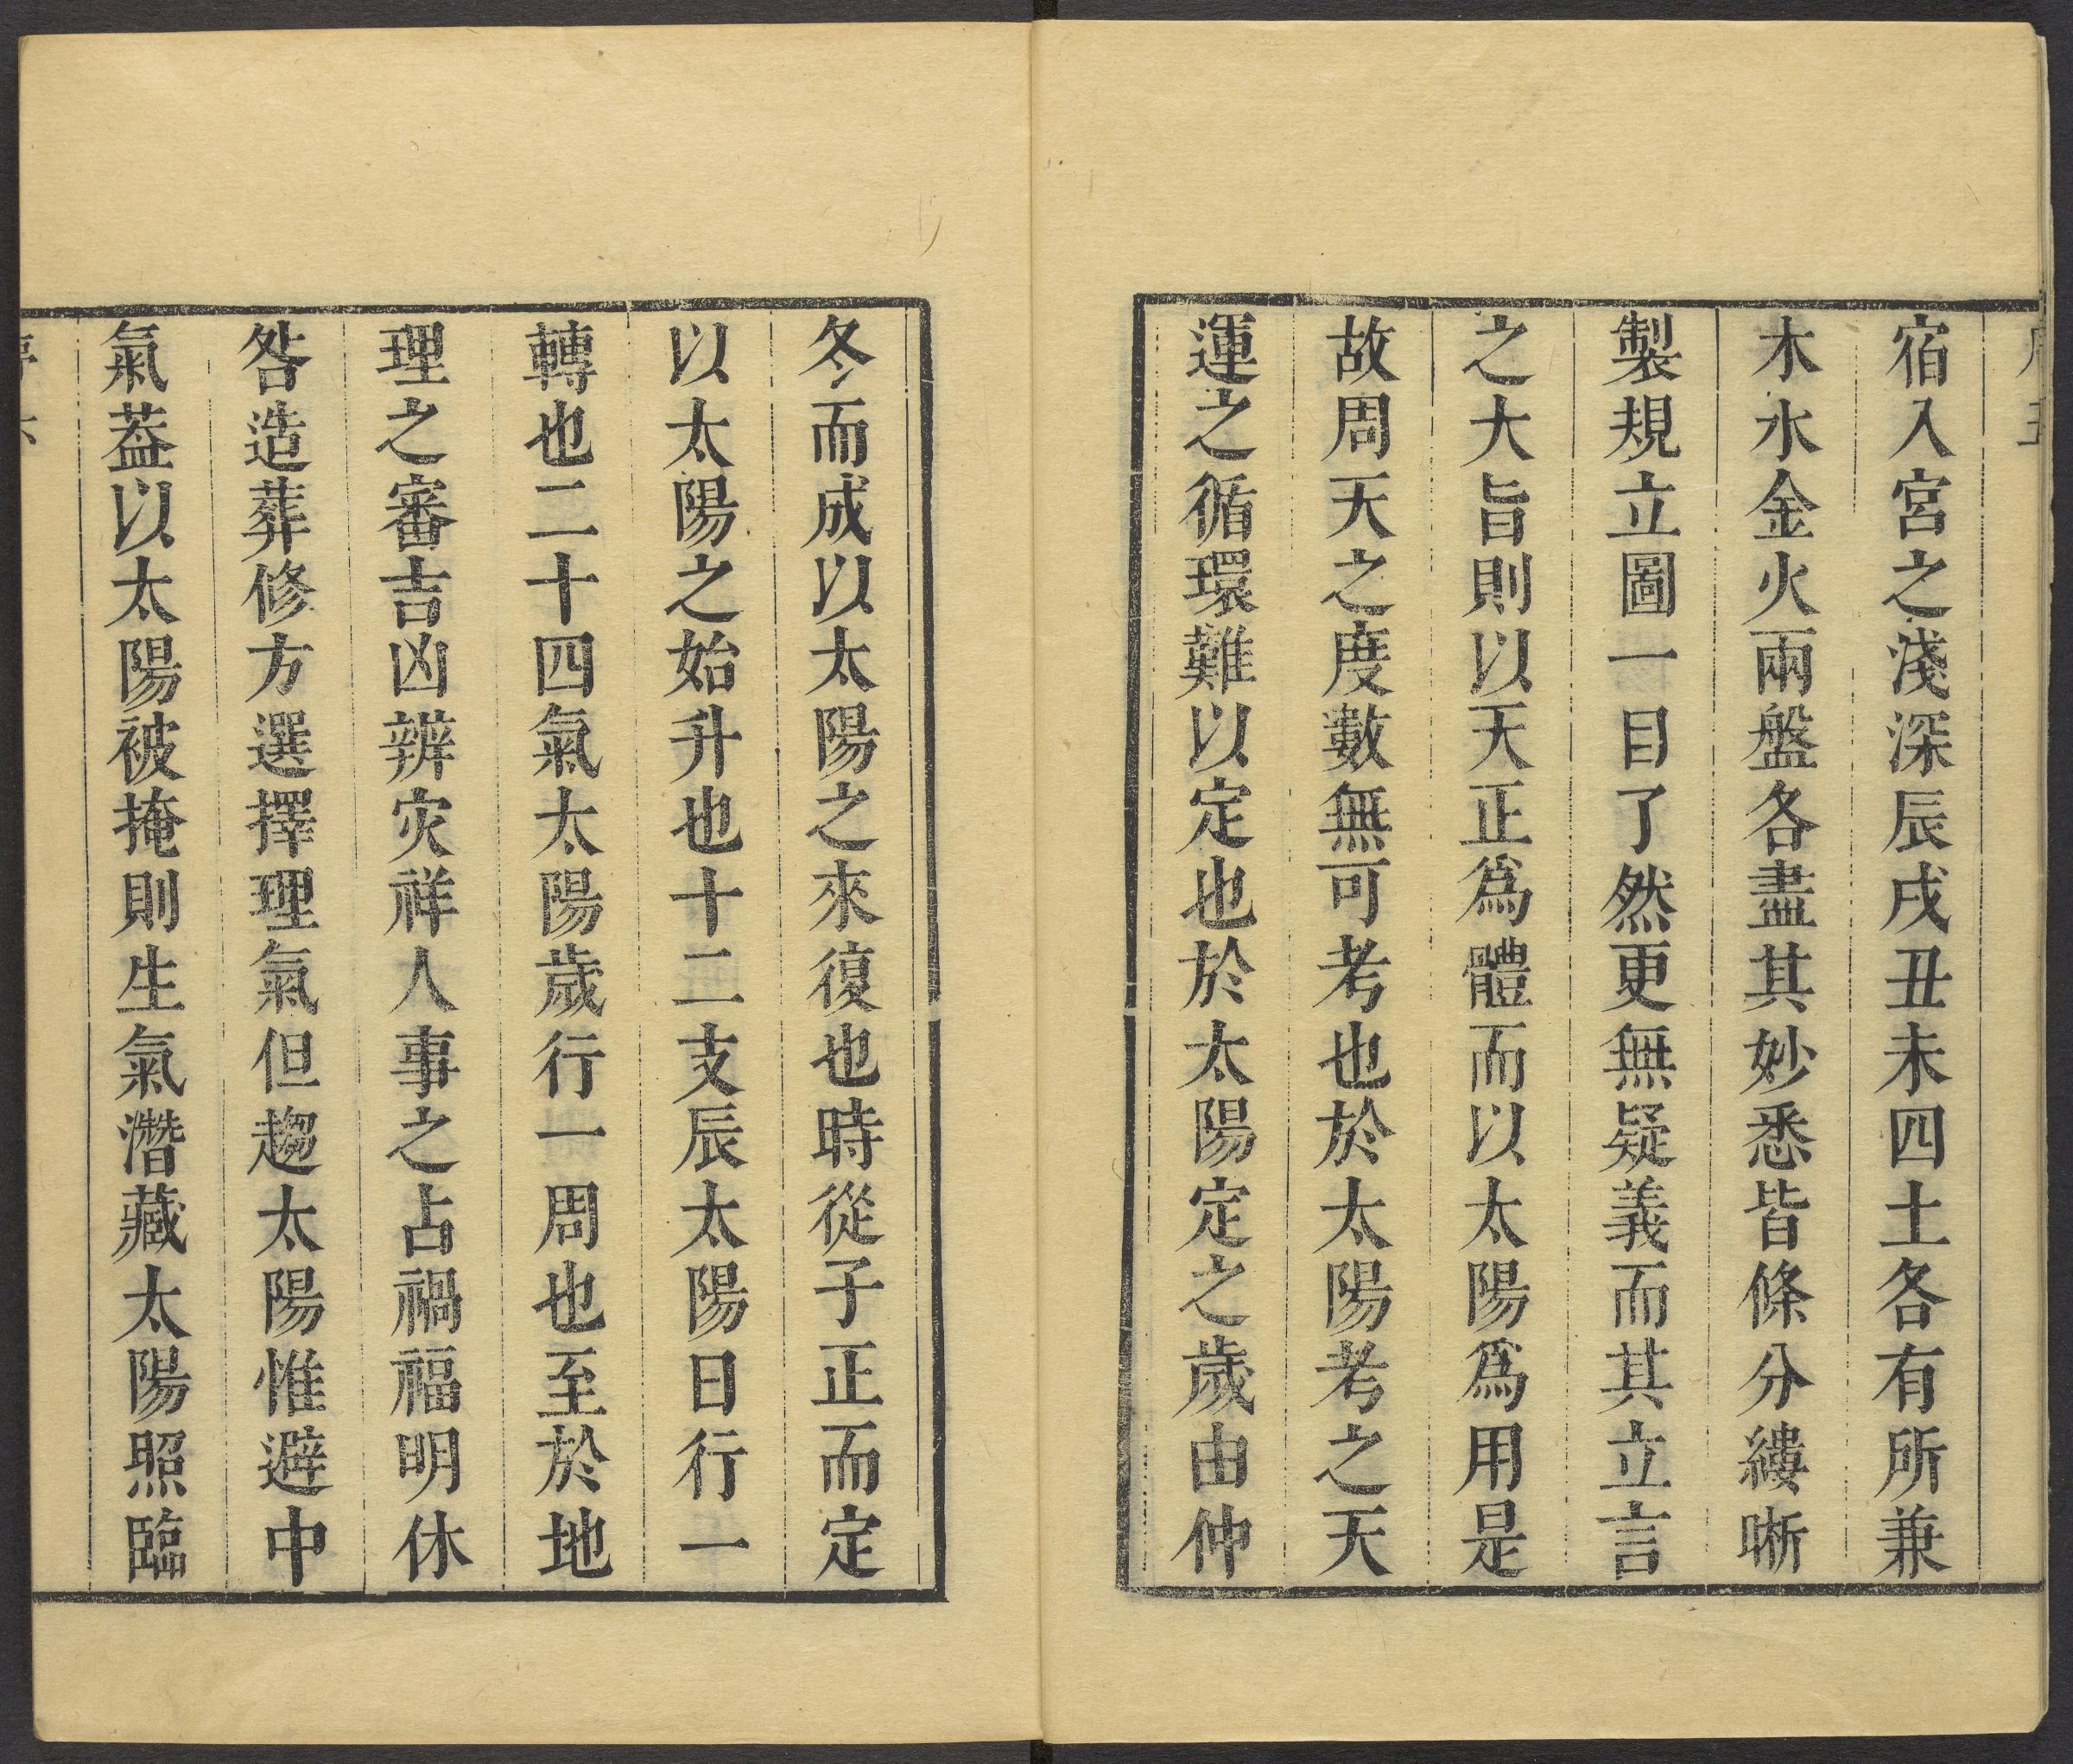 宿入宮之淺深辰戌丑未四土各有所兼
木水金火兩盤各盡其妙悉皆條分縷晰
製規立圖一目了然更無疑義而其立言
之大旨則以天正爲體而以太陽爲用是
故周天之度數無可考也於太陽考之天
運之循環難以定也於太陽定之歲由仲
冬而成以太陽之來復也時從子正而定
以太陽之始升也十二支辰太陽日行一
轉也二十四氣太陽歲行一周也至於地
理之審吉凶辨灾祥人事之占禍福明休
咎造葬修方選擇理氣但趨太陽惟避中
氣葢以太陽被掩則生氣潛藏太陽照臨